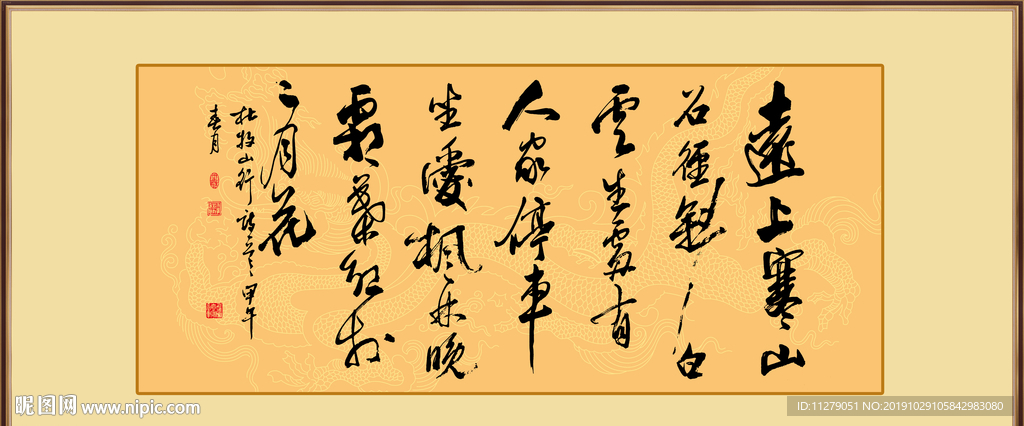 遠上寒山
石徑斜白
雲生處有
人家停車
坐愛楓林晚
霜葉紅於
二月花
杜牧山行詩 甲午
春月
昵图网 www.nipic.com
ID:11279051 NO:20191029105842983080